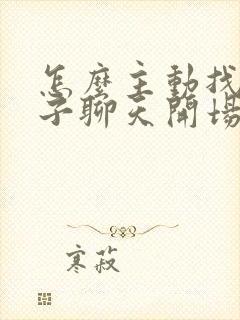 怎麼主動找
子聊天開場
寒菽